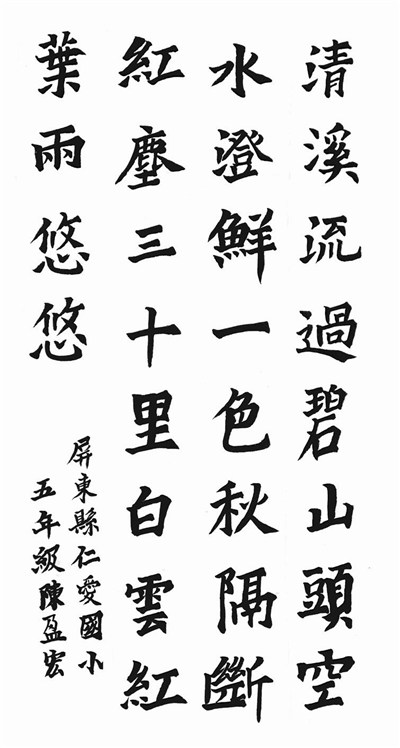 清溪流過碧山頭空
水澄鮮一色秋隔斷
紅塵三十里白雲紅
葉雨悠悠
屏東縣仁愛國小
五年級陳盈宏